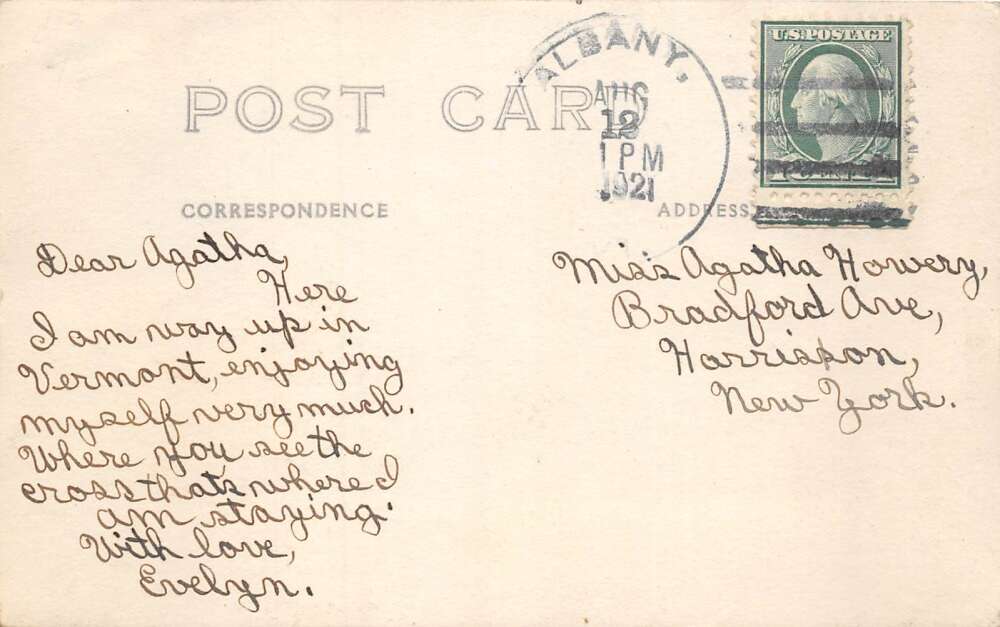 POST CARD
ALBANY,
AUG
12
1 PM
1921
U.S. POSTAGE
CORRESPONDENCE
ADDRESS
Dear Agatha,
Here
I am way up in
Vermont, enjoying
myself very much.
Where you see the
cross thats where I
am staying.
With love,
Evelyn.
Miss Agatha Howery,
Bradford Ave,
Harrison,
New York.